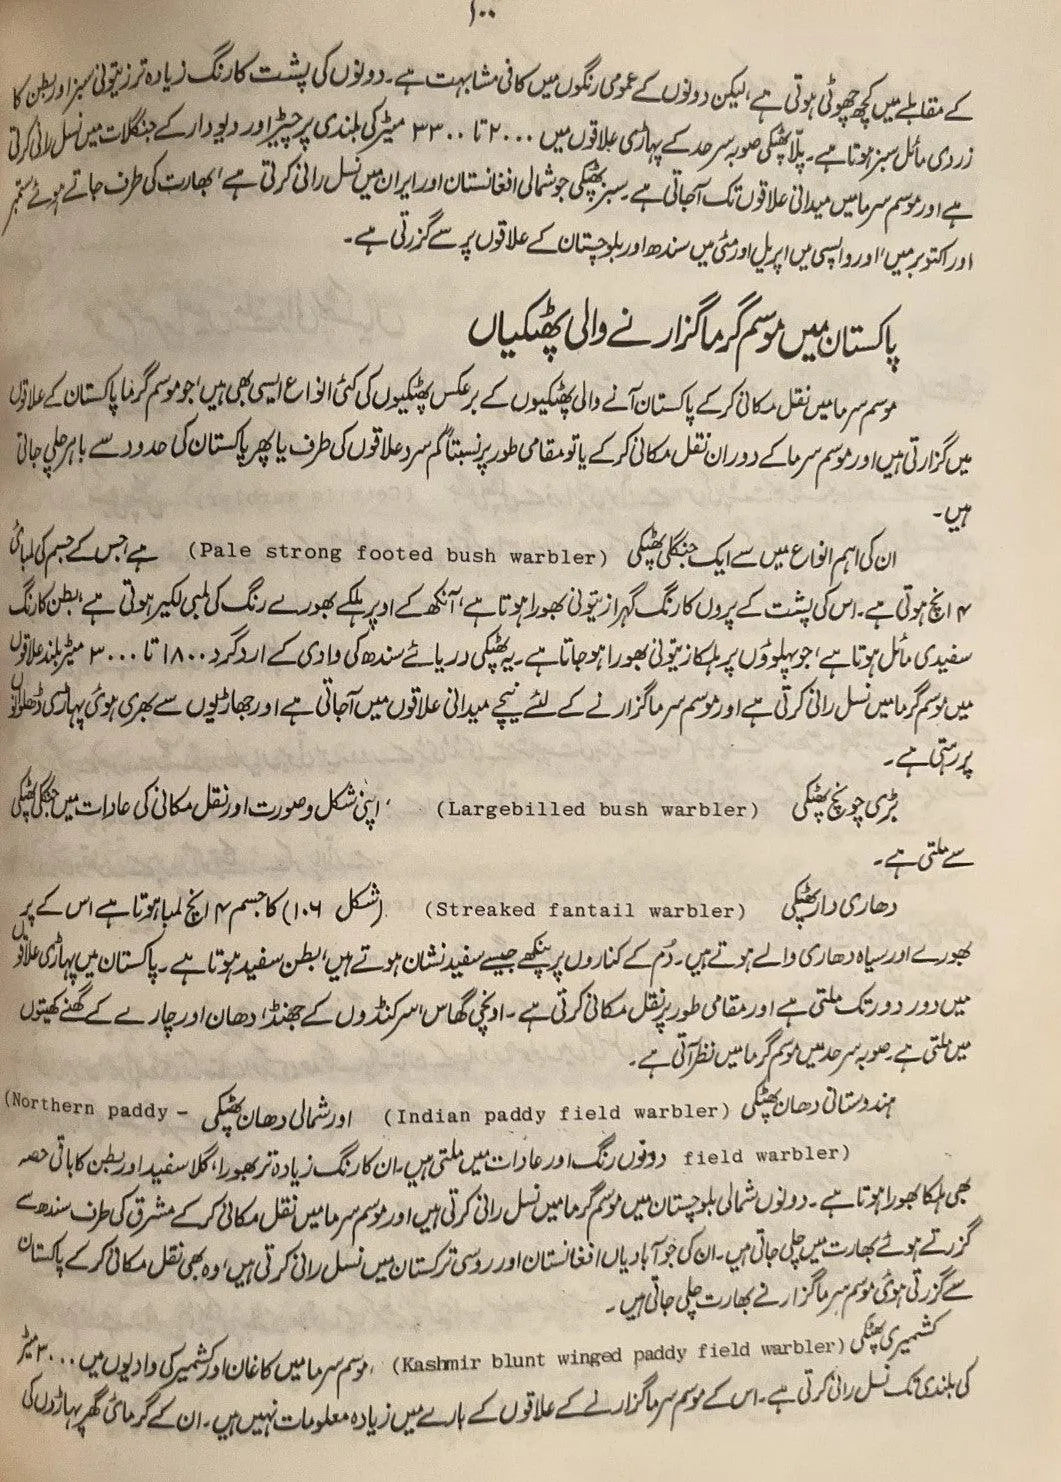 ۱۰۰
کے مقابلے میں کچھ چھوٹی ہوتی ہے، لیکن دونوں کے عمومی رنگوں میں کافی مشابہت ہے۔ دونوں کی پشت کا رنگ زیادہ تر زیتونی سبز اور بطن کا
زردی مائل سبز ہوتا ہے۔ پلّا پھٹکی صوبہ سرحد کے پہاڑی علاقوں میں ۲۰۰۰ تا ۳۳۰۰ میٹر کی بلندی پر چیڑ اور دیودار کے جنگلات میں نسل رانی کرتی
ہے اور موسم سرما میں میدانی علاقوں تک آجاتی ہے۔ سبز پھٹکی جو شمالی افغانستان اور ایران میں نسل رانی کرتی ہے، بھارت کی طرف جاتے ہوئے ستمبر
اور اکتوبر میں، اور واپسی میں اپریل اور مئی میں سندھ اور بلوچستان کے علاقوں پر سے گزرتی ہے۔
پاکستان میں موسم گرما گزارنے والی پھٹکیاں
موسم سرما میں نقل مکانی کر کے پاکستان آنے والی پھٹکیوں کے برعکس پھٹکیوں کی کئی انواع ایسی بھی ہیں، جو موسم گرما پاکستان کے علاقوں
میں گزارتی ہیں اور موسم سرما کے دوران نقل مکانی کر کے یا تو مقامی طور پر نسبتاً کم سرد علاقوں کی طرف یا پھر پاکستان کی حدود سے باہر چلی جاتی
ہیں۔
ان کی اہم انواع میں سے ایک جنگلی پھٹکی (Pale strong footed bush warbler) ہے، جس کے جسم کی لمبائی
۴ انچ ہوتی ہے۔ اس کی پشت کے پروں کا رنگ گہرا زیتونی بھورا ہوتا ہے، آنکھ کے اوپر ہلکے بھورے رنگ کی لمبی لکیر ہوتی ہے، بطن کا رنگ
سفیدی مائل ہوتا ہے، جو پہلوؤں پر ہلکا زیتونی بھورا ہو جاتا ہے۔ یہ پھٹکی دریائے سندھ کی وادی کے اردگرد ۱۸۰۰ تا ۳۰۰۰ میٹر بلند علاقوں
میں موسم گرما میں نسل رانی کرتی ہے اور موسم سرما گزارنے کے لئے نیچے میدانی علاقوں میں آجاتی ہے اور جھاڑیوں سے بھری ہوئی پہاڑی ڈھلوانوں
پر رہتی ہے۔
بڑی چونچ پھٹکی (Largebilled bush warbler) ، اپنی شکل و صورت اور نقل مکانی کی عادات میں جنگلی پھٹکی
سے ملتی ہے۔
دھاری دار پھٹکی (Streaked fantail warbler) (شکل ۱۰۶) کا جسم ۴ انچ لمبا ہوتا ہے اس کے پر
بھورے اور سیاہ دھاری والے ہوتے ہیں۔ دُم کے کناروں پر پنکھے جیسے سفید نشان ہوتے ہیں، بطن سفید ہوتا ہے۔ پاکستان میں پہاڑی علاقوں
میں دور دور تک ملتی ہے اور مقامی طور پر نقل مکانی کرتی ہے۔ اونچی گھاس، سرکنڈوں کے جھنڈ، دھان اور چارے کے گھنے کھیتوں
میں ملتی ہے۔ صوبہ سرحد میں موسم گرما میں نظر آتی ہے۔
ہندوستانی دھان پھٹکی (Indian paddy field warbler) اور شمالی دھان پھٹکی (Northern paddy -
field warbler) دونوں رنگ اور عادات میں ملتی ہیں۔ ان کا رنگ زیادہ تر بھورا، گلا سفید اور بطن کا باقی حصہ
بھی ہلکا بھورا ہوتا ہے۔ دونوں شمالی بلوچستان میں موسم گرما میں نسل رانی کرتی ہیں اور موسم سرما میں نقل مکانی کر کے مشرق کی طرف سندھ سے
گزرتے ہوئے بھارت میں چلی جاتی ہیں۔ ان کی جو آبادیاں افغانستان اور روسی ترکستان میں نسل رانی کرتی ہیں، وہ بھی نقل مکانی کر کے پاکستان
سے گزرتی ہوئی موسم سرما گزارنے بھارت چلی جاتی ہیں۔
کشمیری پھٹکی (Kashmir blunt winged paddy field warbler) ، موسم سرما میں کاغان اور کشمیر کی وادیوں میں ۳۰۰۰ میٹر
کی بلندی تک نسل رانی کرتی ہے۔ اس کے موسم سرما گزارنے کے علاقوں کے بارے میں زیادہ معلومات نہیں ہیں۔ ان کے گرمائی گھر پہاڑوں کی